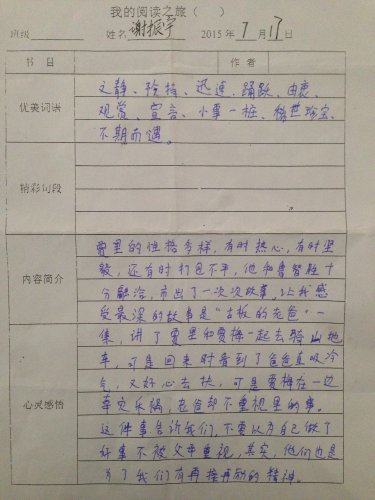 我的阅读之旅（ ）
班级 姓名 谢振宇 2015年7月17日
书目 作者
优美词语
文静、矜持、迅速、踊跃、由衷、
观赏、宣言、小事一桩、稀世珍宝、
不期而遇。
精彩句段
内容简介
贾里的性格多样，有时热心，有时坚
毅，还有时打包不平，他和鲁智胜十
分融洽，市出了一次次故事，让我感
受最深的故事是“古板的老爸”一
心灵感悟
集，讲了贾里和贾梅一起去骑山地
车，可是回来时看到了爸爸直吸冷
气，又好心去扶，可是贾梅在一边
幸灾乐祸，老爸却不重视里的事。
这件事告诉我们，不要以为自己做了
好事不被父母重视，其实，他们也是
为了我们有再接再励的精神。